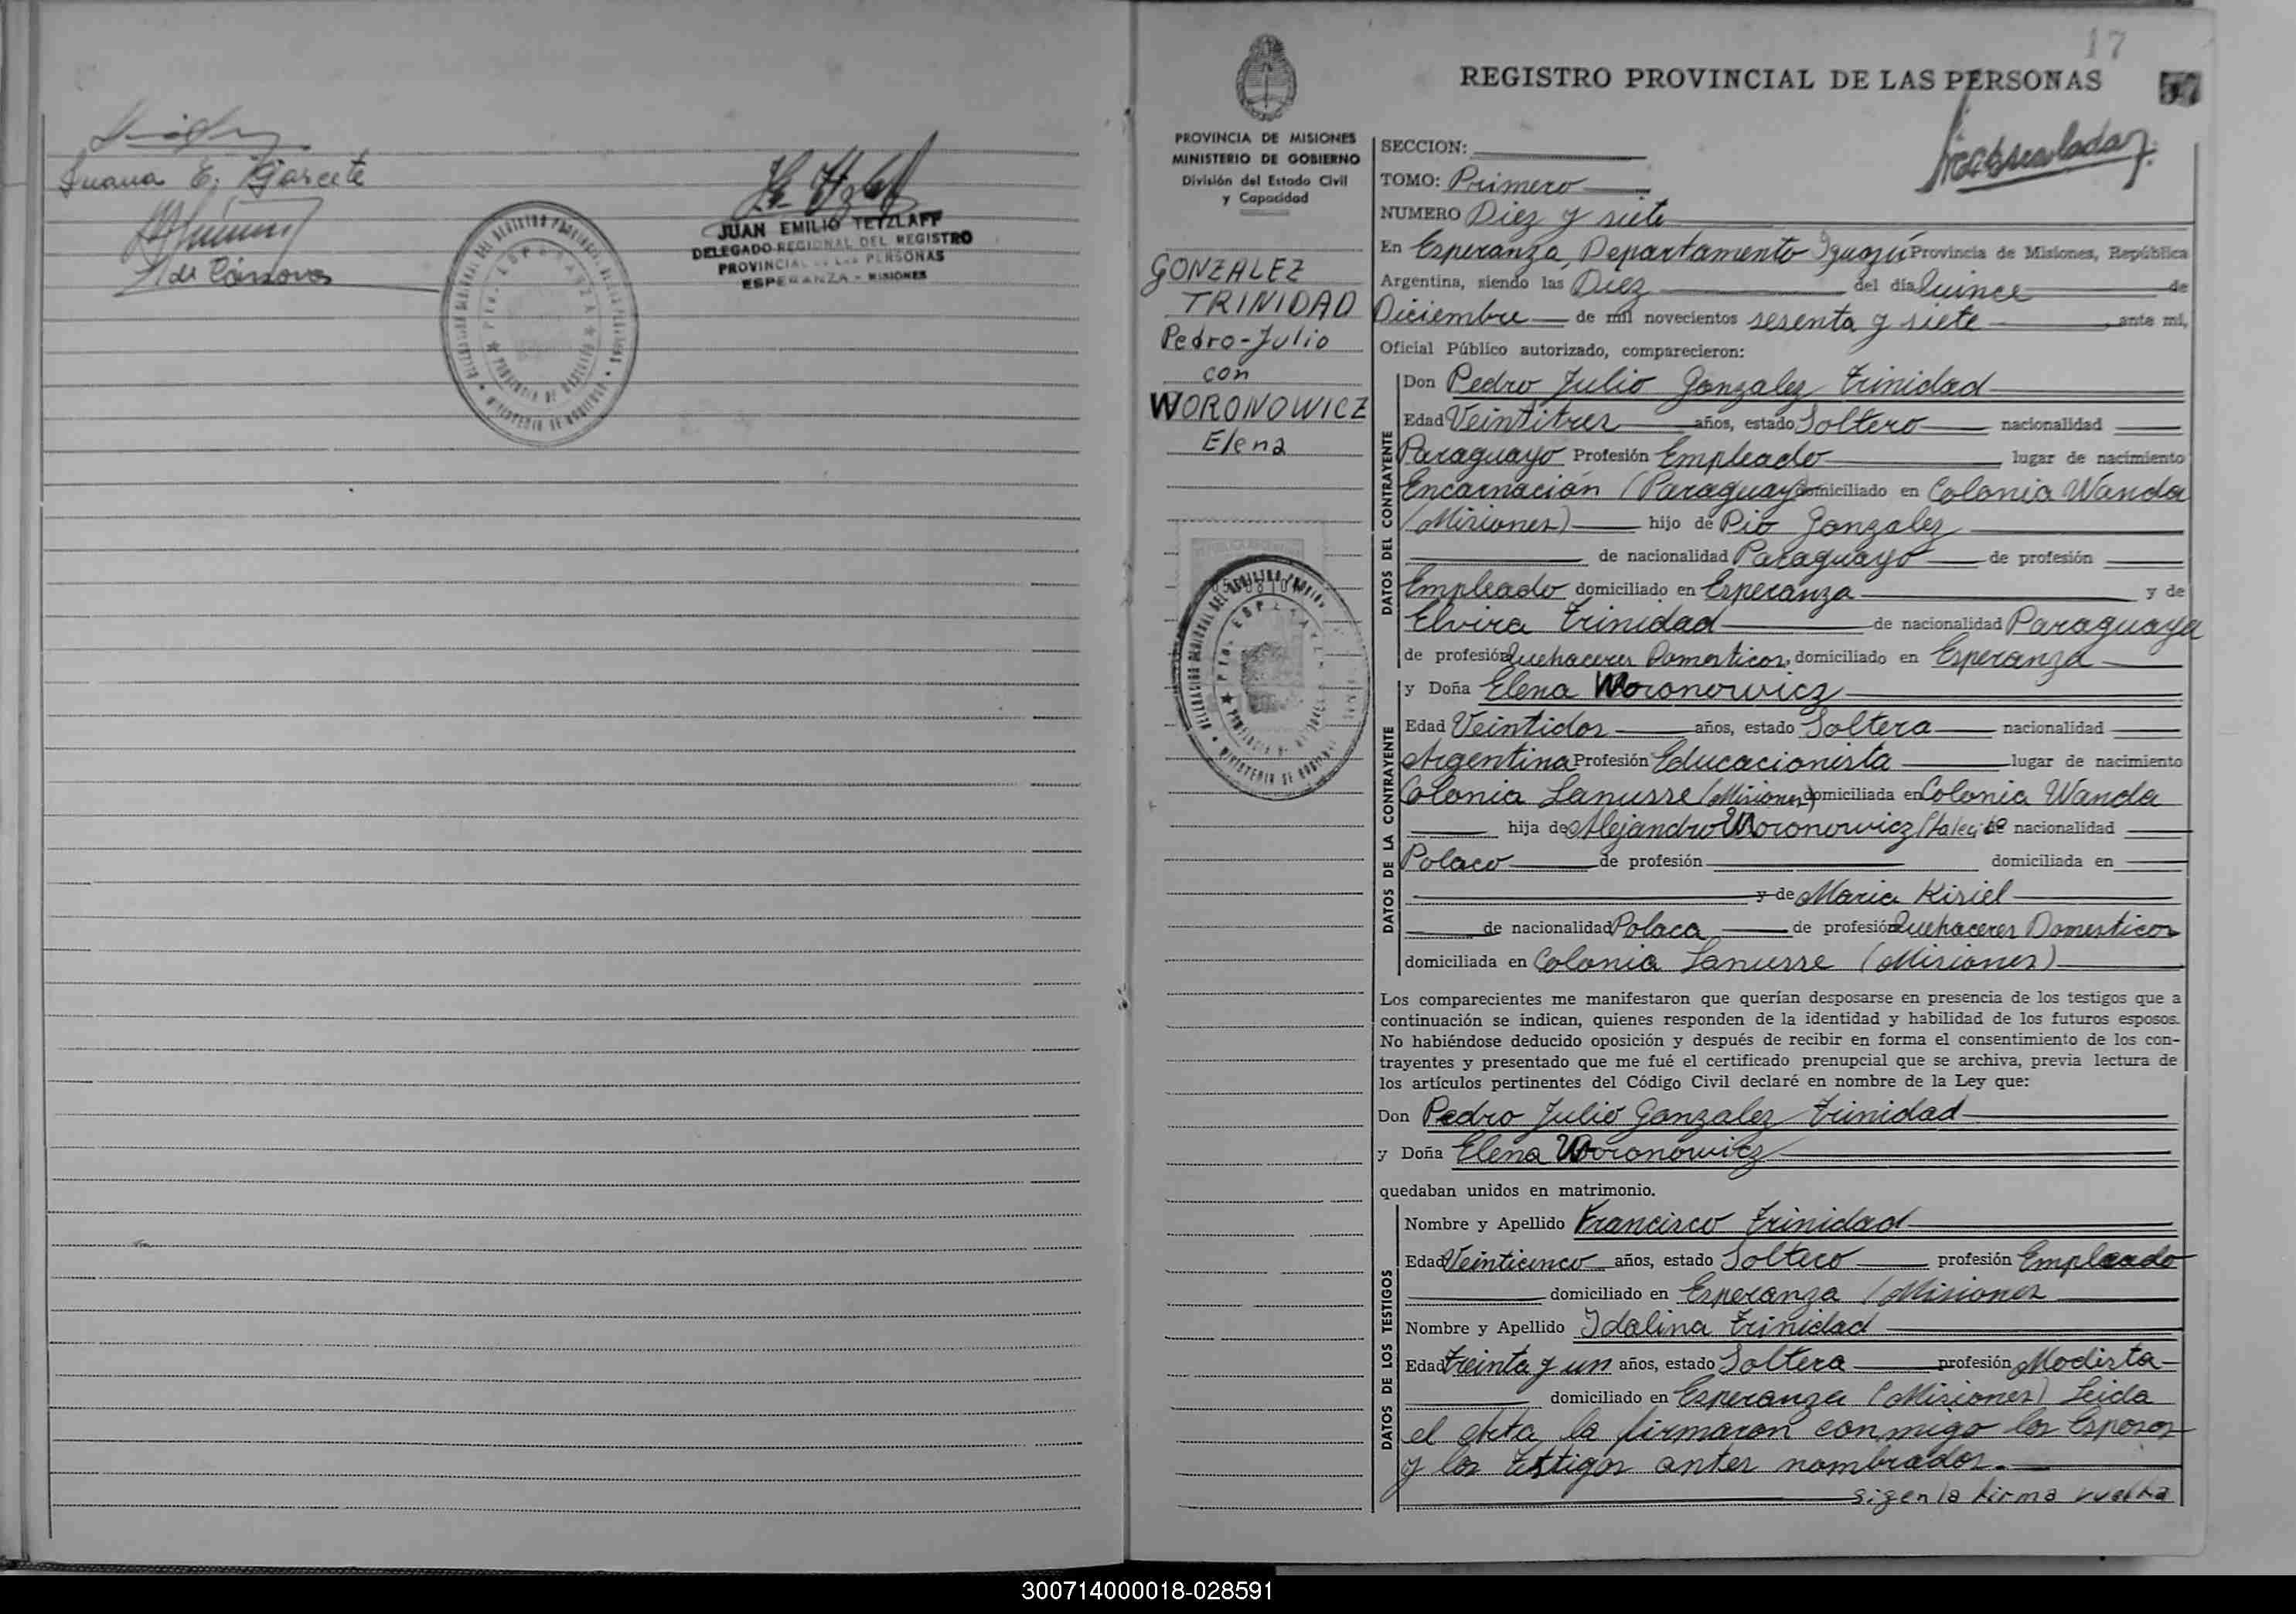 Juana E. Garcete
de Cánovas
JUAN EMILIO TETZLAFF
DELEGADO REGIONAL DEL REGISTRO
PROVINCIAL DE LAS PERSONAS
ESPERANZA - MISIONES
17
REGISTRO PROVINCIAL DE LAS PERSONAS
PROVINCIA DE MISIONES
MINISTERIO DE GOBIERNO
División del Estado Civil
y Capacidad
GONZALEZ
TRINIDAD
Pedro-Julio
con
WORONOWICZ
Elena
SECCION:
TOMO: Primero
NUMERO Diez y siete
En Esperanza, Departamento Iguazú Provincia de Misiones, República
Argentina, siendo las Diez del día Quince de
Diciembre de mil novecientos sesenta y siete ante mi,
Oficial Público autorizado, comparecieron:
DATOS DEL CONTRAYENTE
Don Pedro Julio Gonzalez Trinidad
Edad Veintitres años, estado Soltero nacionalidad
Paraguayo Profesión Empleado lugar de nacimiento
Encarnación (Paraguay) domiciliado en Colonia Wanda
(Misiones) hijo de Pio Gonzalez
de nacionalidad Paraguayo de profesión
Empleado domiciliado en Esperanza y de
Elvira Trinidad de nacionalidad Paraguaya
de profesión Quehaceres Domesticos, domiciliado en Esperanza
DATOS DE LA CONTRAYENTE
y Doña Elena Woronowicz
Edad Veintidos años, estado Soltera nacionalidad
Argentina Profesión Educacionista lugar de nacimiento
Colonia Lanusse (Misiones) domiciliada en Colonia Wanda
hija de Alejandro Woronowicz de nacionalidad
Polaco de profesión domiciliada en
y de Maria Kisiel
de nacionalidad Polaca de profesión Quehaceres Domesticos
domiciliada en Colonia Lanusse (Misiones)
Los comparecientes me manifestaron que querían desposarse en presencia de los testigos que a
continuación se indican, quienes responden de la identidad y habilidad de los futuros esposos.
No habiéndose deducido oposición y después de recibir en forma el consentimiento de los con-
trayentes y presentado que me fué el certificado prenupcial que se archiva, previa lectura de
los artículos pertinentes del Código Civil declaré en nombre de la Ley que:
Don Pedro Julio Gonzalez Trinidad
y Doña Elena Woronowicz
quedaban unidos en matrimonio.
DATOS DE LOS TESTIGOS
Nombre y Apellido Francisco Trinidad
Edad Veinticinco años, estado Soltero profesión Empleado
domiciliado en Esperanza (Misiones
Nombre y Apellido Idalina Trinidad
Edad Treinta y un años, estado Soltera profesión Modista
domiciliado en Esperanza (Misiones) Leida
el Acta, la firmaron conmigo los Esposos
y los Testigos antes nombrados.
sigen la firma vuelta
300714000018-028591